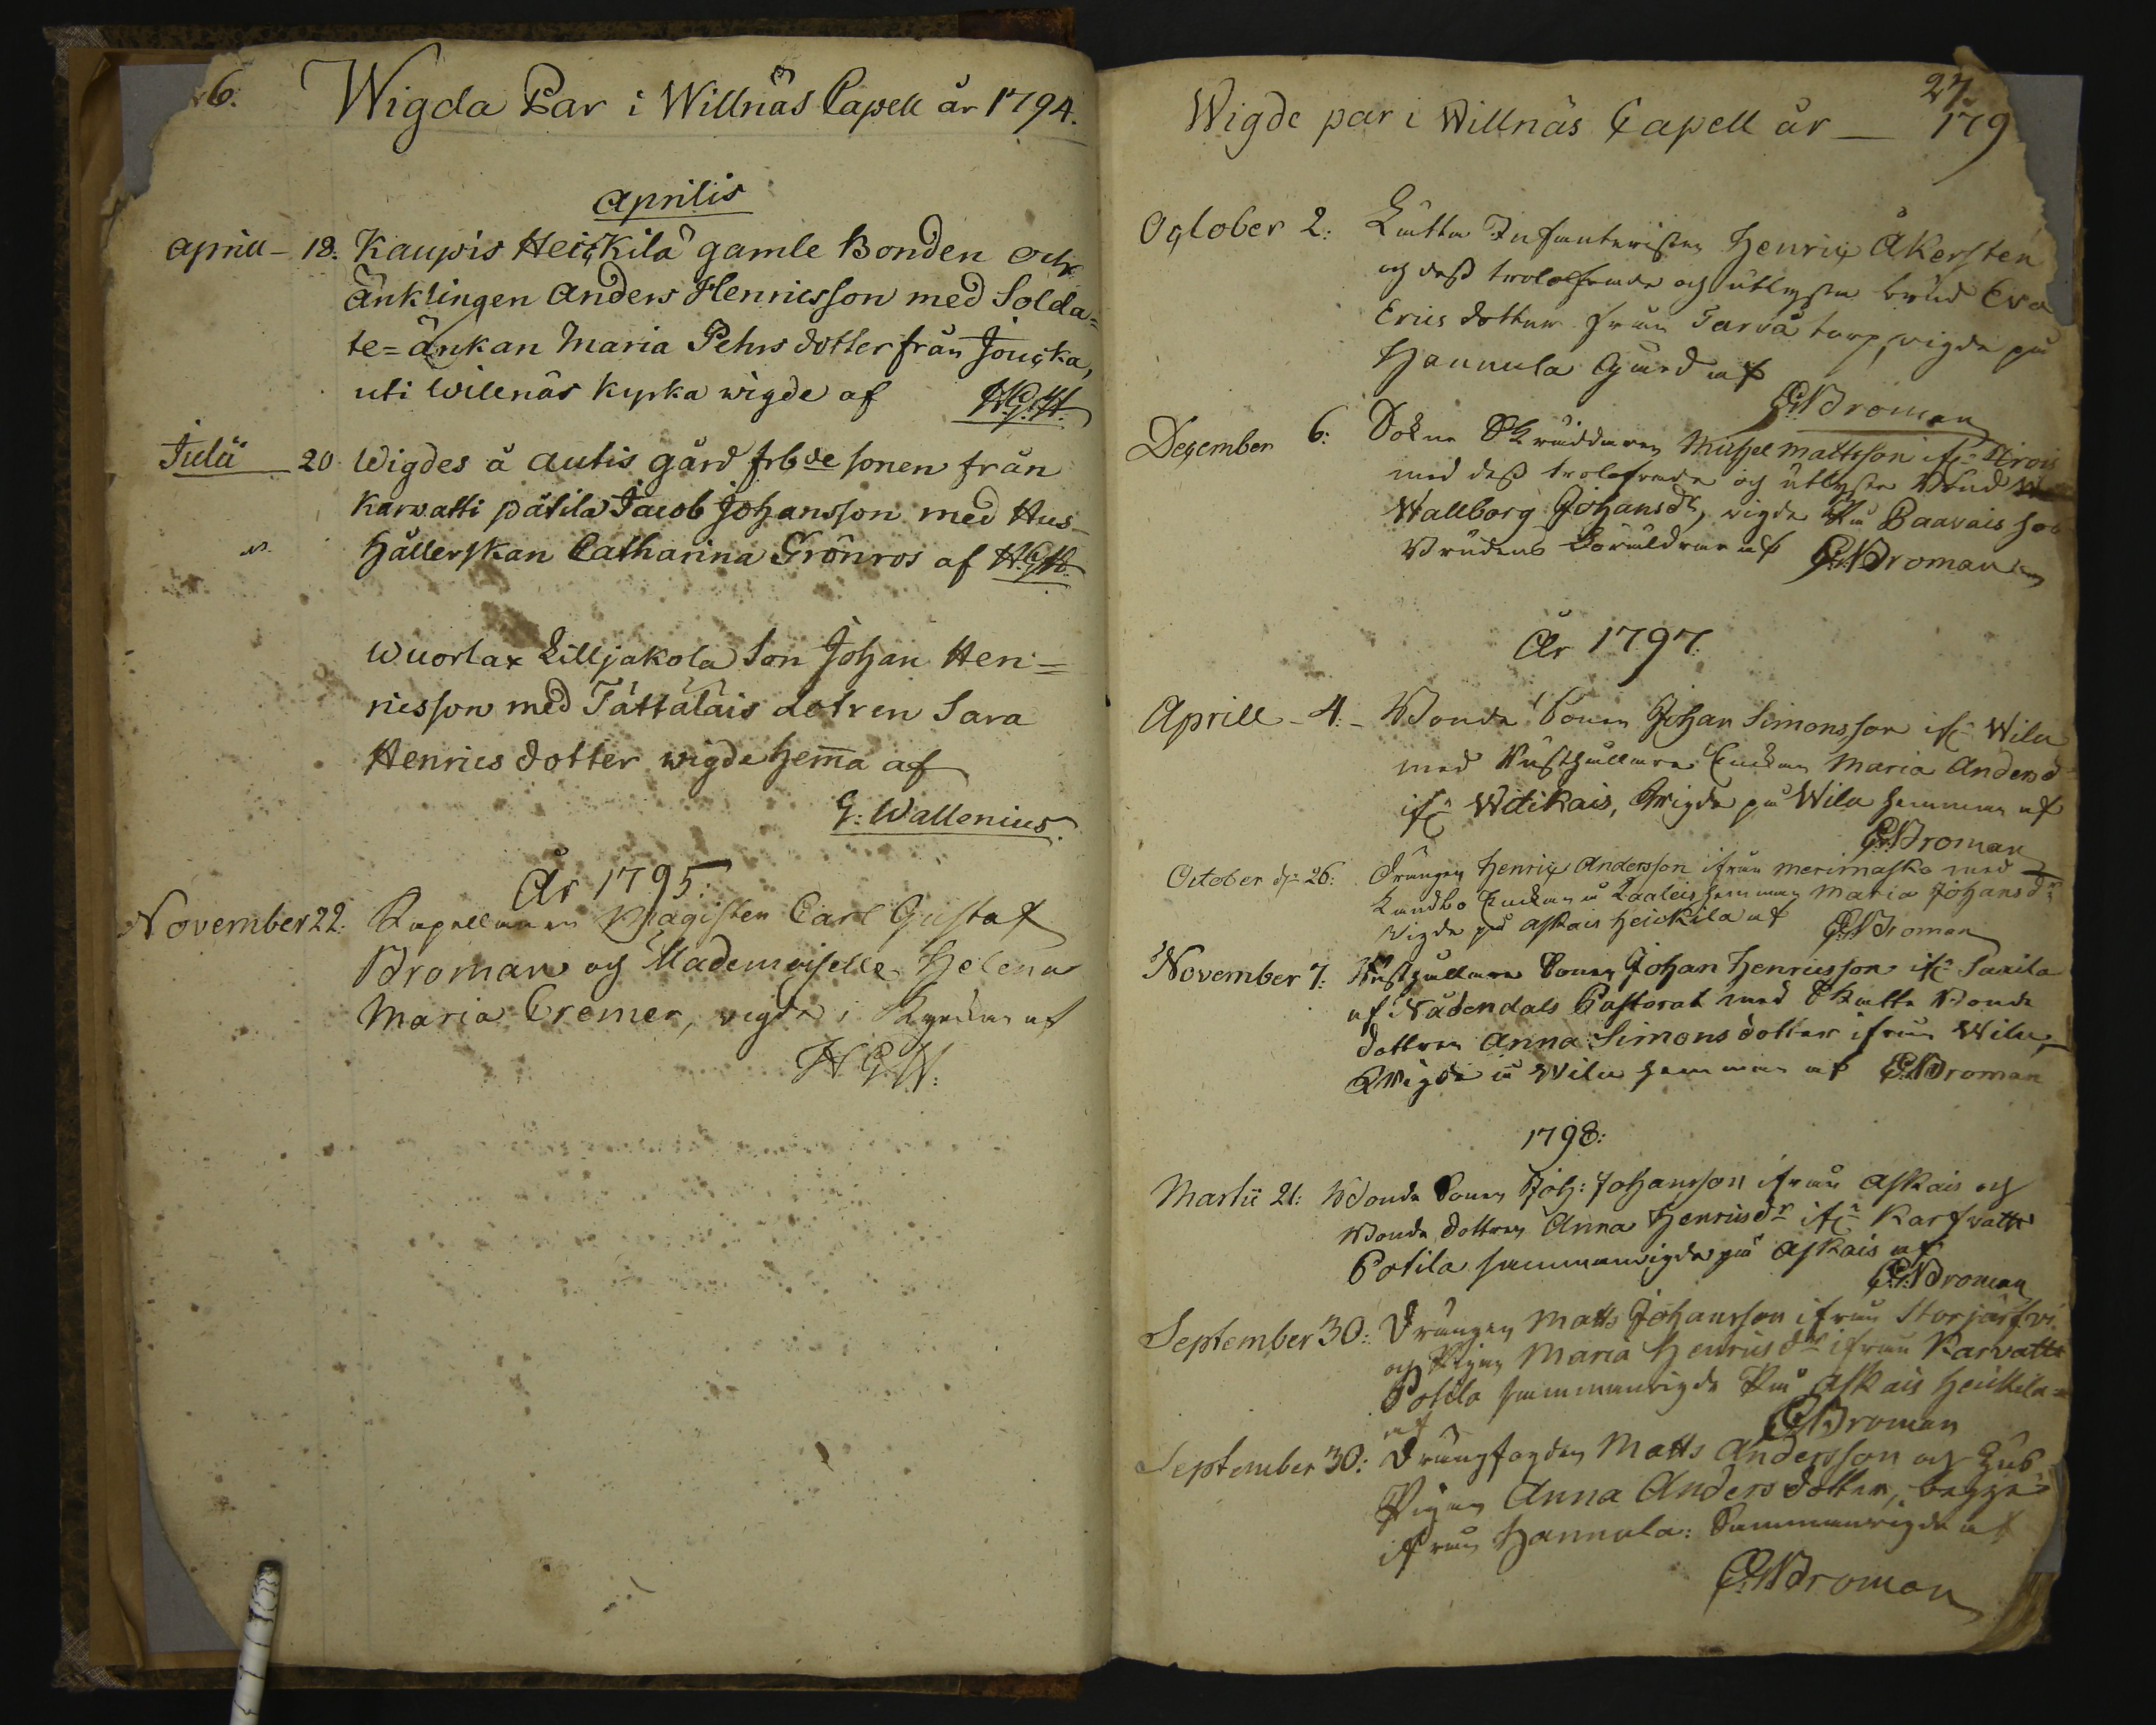 6.
Wigda Par i Willnäs Capell år 1794.
Aprilis
April - 18. Kaupis Heickilä gamle Bonden och
änklingen Anders Henricsson med Solda=
te=änkan Maria Pehrsdotter från Joucka,
uti Willnäs kyrka wigde af
Julii 20. Wigdes å Autis gård frbde sonen från
Karvatti pätilä Jacob Johansson med Hus-
hållerskan Catharina Grönros af
Wuorlax Lilljakola Son Johan Hen=
ricsson med Tättäläis dotren Sara
Henrics dotter wigde hema af
G: Wallenius.
År 1795:
November 22. Kapellanen Magister Carl Gustaf
Broman och Mademoiselle Helena
Maria Cremer, vigde i Kyrckan af
H.G.W.
27.
Wigde par i Willnäs Capell år — 179
October 2: Lätta Infanteristen Henric Åkersten
och dess trolofvade och utlysta brud Eva
Erics dotter från Tarvä torp, vigde på
Hannula Gård af
C:G:Broman
December 6: Sokne Skräddaren Michel Mattsson ifr
med dess trolofvade och utlysta Brud
Wallborg Johansdr, vigde på Paavais hos
Brudens Föräldrar af C:G:Broman
År 1797.
Aprill - 4. - Bonde Sonen Johan Simonsson ifr Wilu
med Rusthållare Enckan Maria Andersd
ifr Wdikais, vigde på Wilu hemman af
C:G:Broman
October d. 26: Drängen Henric Andersson ifrån Merimasko med
Landbo Enckan å Kaaleis hemman Maria Johansdr
vigde på Askais Heickilä af C:G:Broman
November 7: Rusthållare Sonen Johan Henricsson ifr Saxila
af Nådendals Pastorat med Skatte Bonde
dottren Anna Simonsdotter ifrån Wilu,
vigde å Wilu hemman af C:G:Broman
1798:
Martii 21: Bonde Sonen Joh: Johansson ifrån Askais och
Bonde dottren Anna Henricsdr ifr Karfvatti
Potila sammanvigde på Askais af
C:G:Broman
September 30: Drängen Matts Johansson ifrån Storjärfvi
och Pigan Maria Henricsdr ifrån Karvatti
Potila sammanvigde På Askais Heickila
af C:G:Broman
September 30: Drängfogden Matts Andersson och Hus
Pigan Anna Anders dotter, begge
ifrån Hannula: Sammanvigde af
C:G:Broman